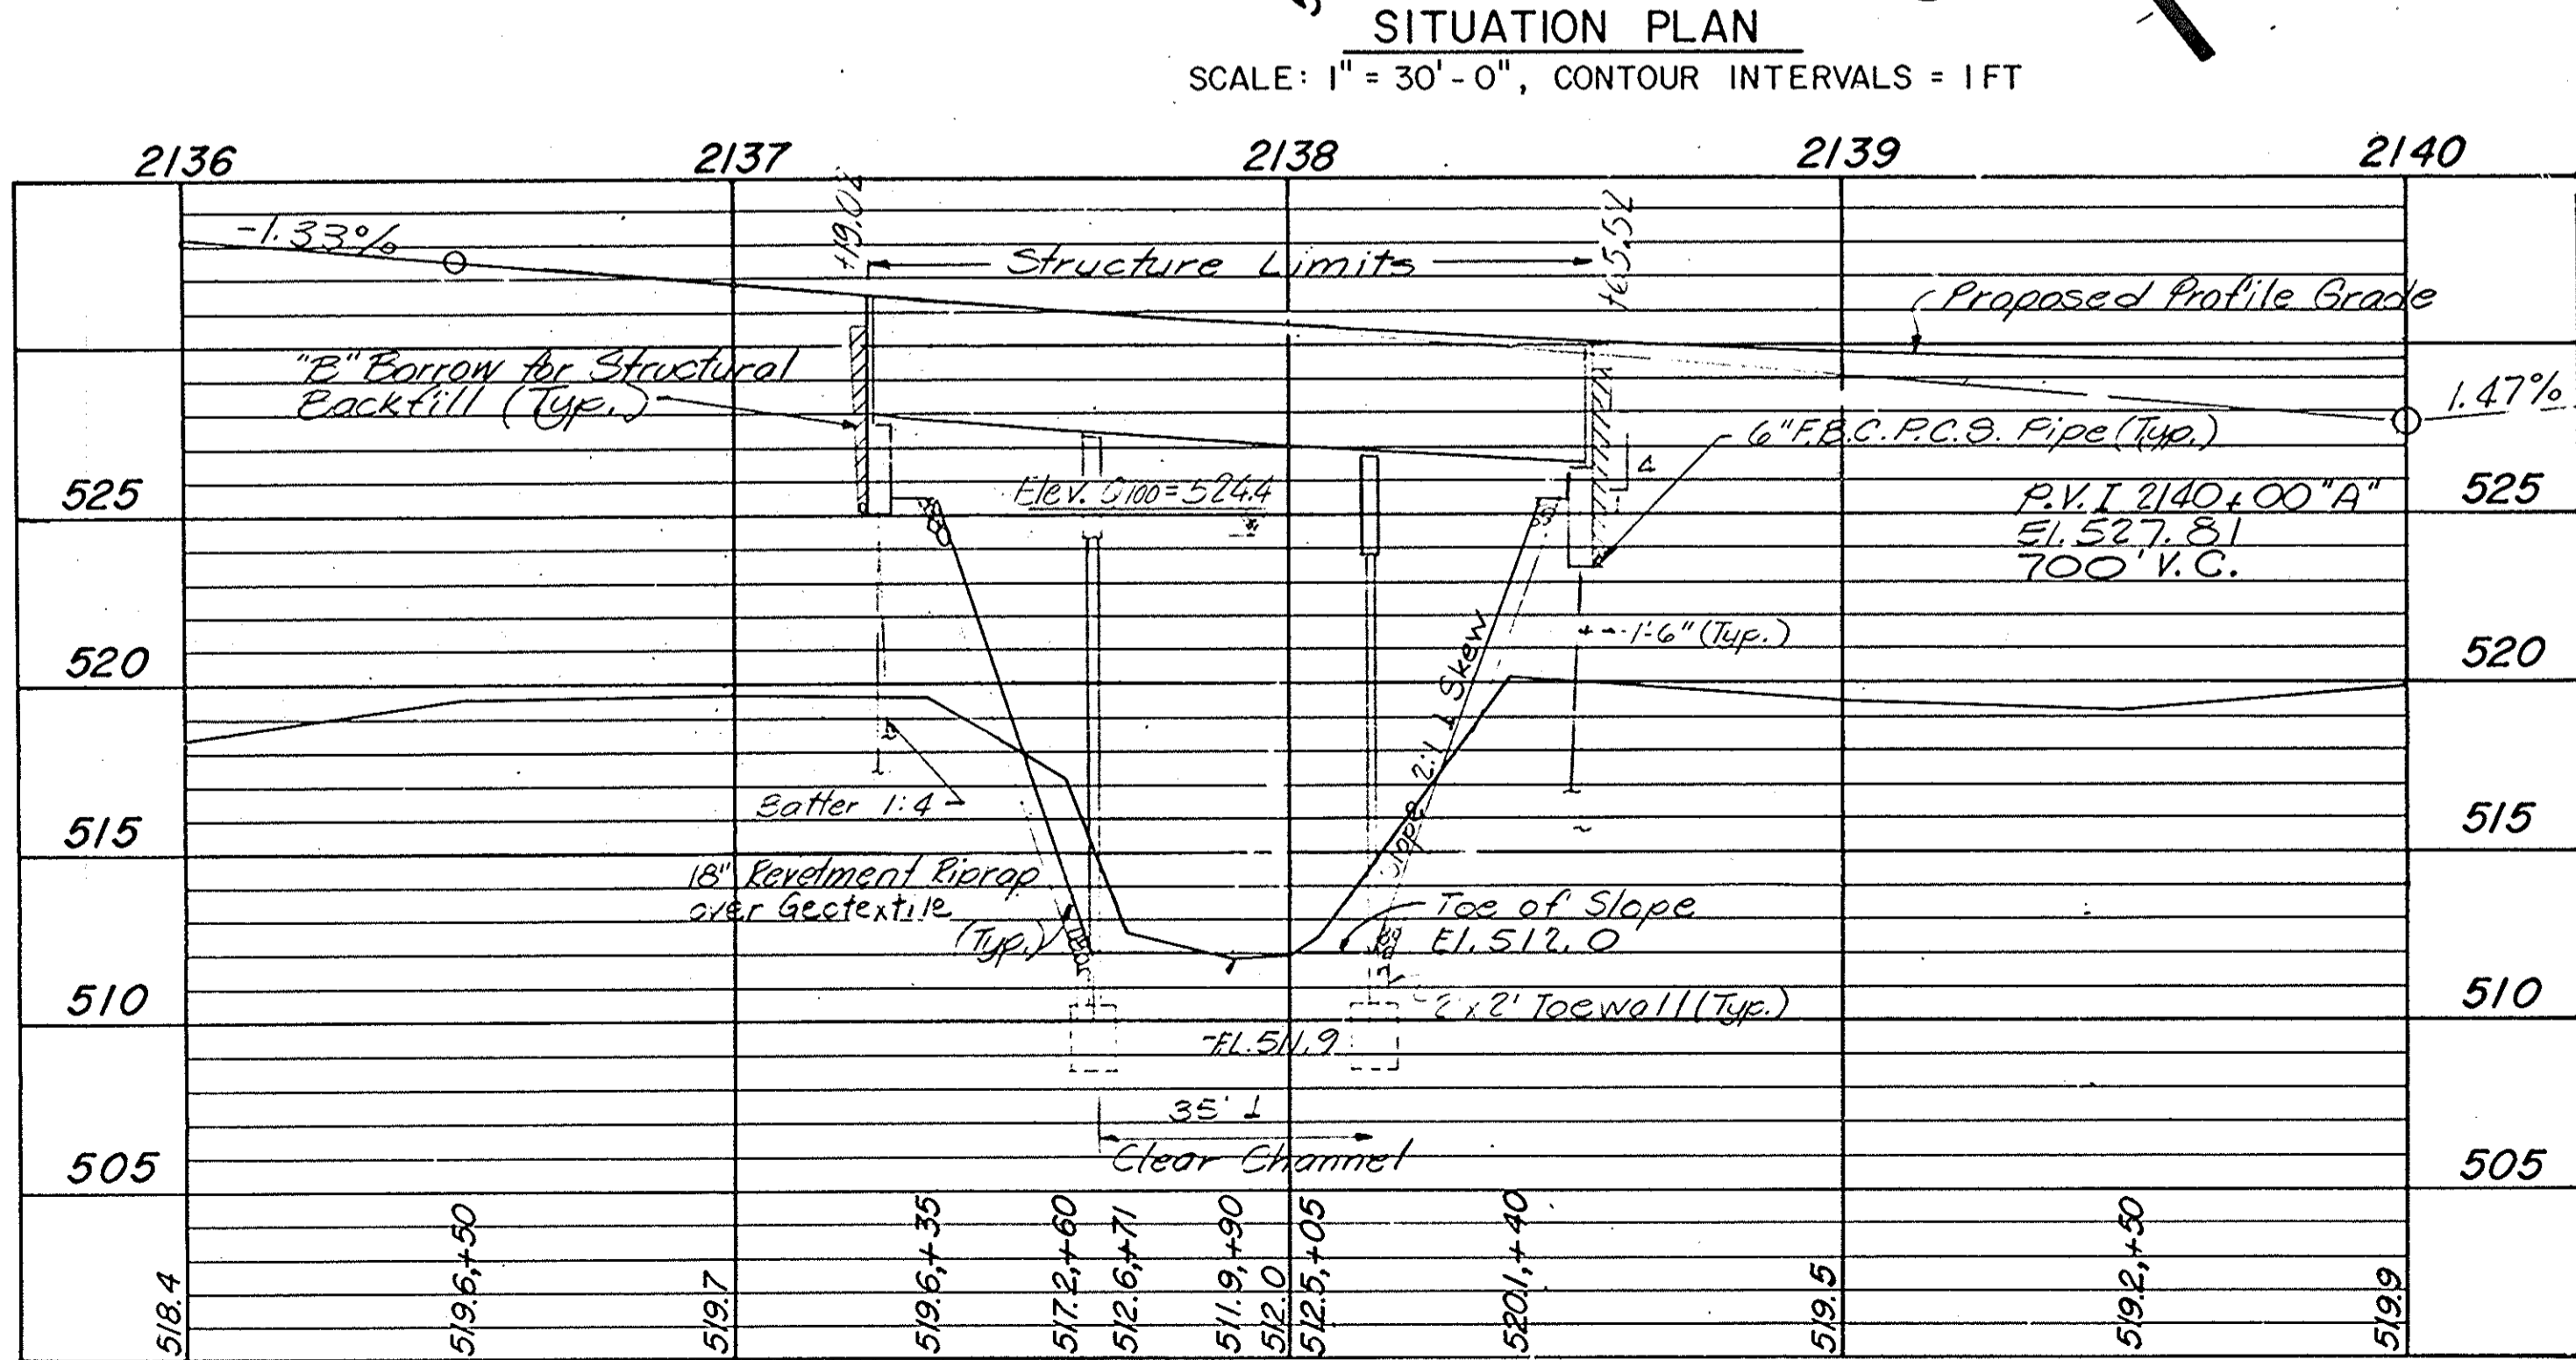 SITUATION PLAN
SCALE: 1" = 30'-0", CONTOUR INTERVALS = 1 FT
2136 2137 2138 2139 2140
-1.33%
Structure Limits
+65.52
Proposed Profile Grade
"B" Borrow for Structural
Backfill (Typ.)
1.47%
6" F.B.C.P.C.S. Pipe (Typ.)
Elev. Q100 = 524.4
525 525
P.V.I 2140+00 "A"
El. 527.81
700' V.C.
1'-6" (Typ.)
520 520
Slope 2:1 ⊥ Skew
Batter 1:4
515 515
18" Revetment Riprap
over Geotextile
(Typ.)
Toe of Slope
El. 512.0
510 510
2'x2' Toewall (Typ.)
FL. 511.9
35' ⊥
Clear Channel
505 505
518.4
519.6,+50
519.7
519.6,+35
517.2,+60
512.6,+71
511.9,+90
512.0
512.5,+05
520.1,+40
519.5
519.2,+50
519.9